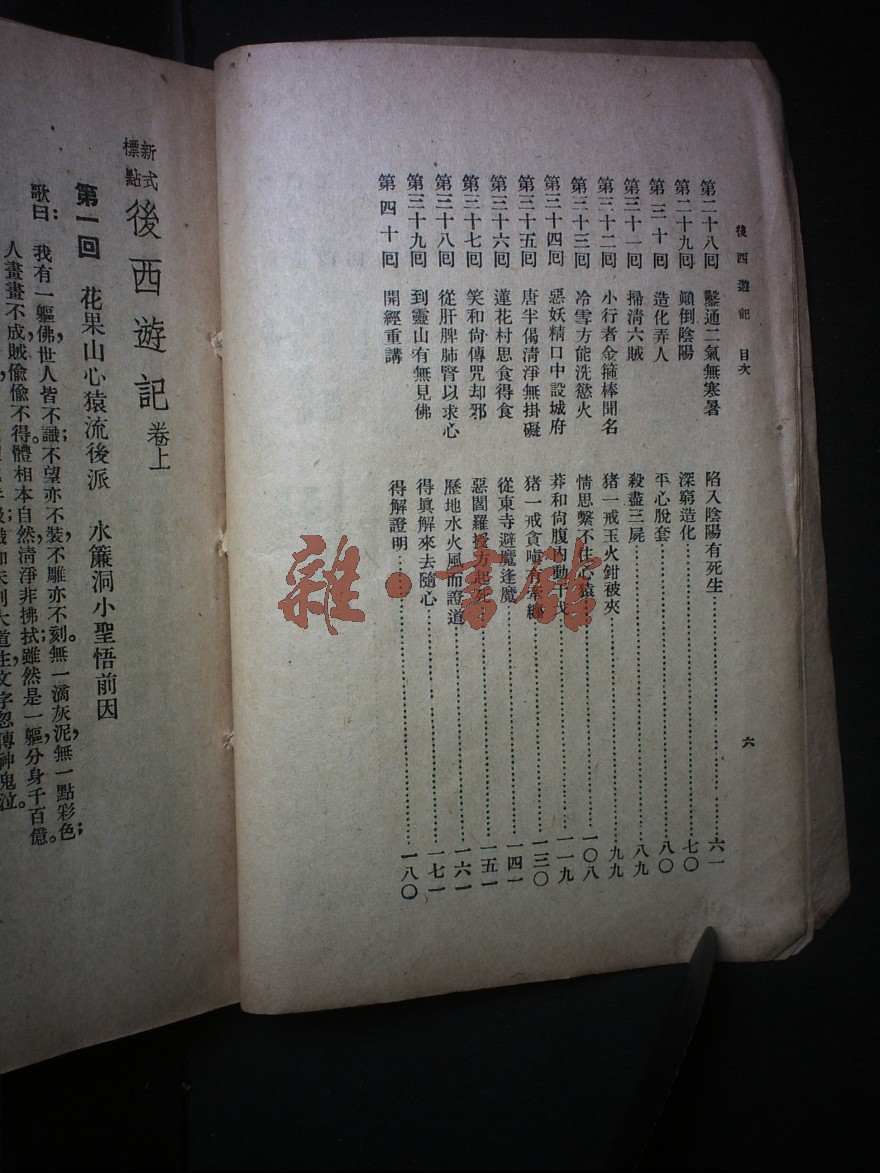 後西遊記 目次 六
第二十八回 鑿通二氣無寒暑 陷入陰陽有死生 六一
第二十九回 顚倒陰陽 深窮造化 七〇
第三十回 造化弄人 平心脫套 八〇
第三十一回 掃清六賊 殺盡三屍 八九
第三十二回 小行者金箍棒聞名 猪一戒玉火鉗被夾 九九
第三十三回 冷雪方能洗慾火 情思繫不住心猿 一〇八
第三十四回 惡妖精口中設城府 莽和尙腹內動干戈 一一九
第三十五回 唐半偈清淨無掛礙 猪一戒貪嗔有 一三〇
第三十六回 蓮花村思食得食 從東寺避魔逢魔 一四一
第三十七回 笑和尙傳咒却邪 惡閻羅授方起死 一五一
第三十八回 從肝脾肺腎以求心 歷地水火風而證道 一六一
第三十九回 到靈山有無見佛 得眞解來去隨心 一七一
第四十回 開經重講 得解證明 一八〇
雜·書館
新式標點 後西遊記 卷上
第一回 花果山心猿流後派 水簾洞小聖悟前因
歌曰：我有一軀佛，世人皆不識；不望亦不裝，不雕亦不刻。無一滴灰泥，無一點彩色；
人畫畫不成，賊偷偷不得。體相本自然，清淨非拂拭；雖然是一軀，分身千百億。
大道往文字，忽傳神鬼泣。